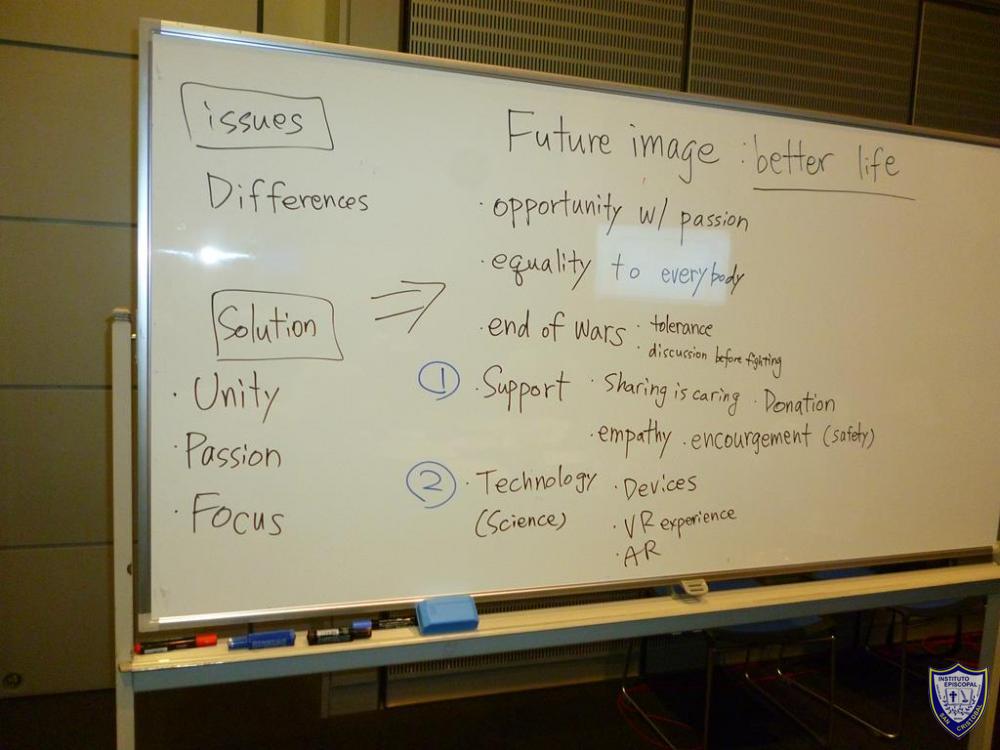 issues
Differences
Solution
· Unity
· Passion
· Focus
Future image : better life
· opportunity w/ passion
· equality to everybody
· end of wars · tolerance
· discussion before fighting
① · Support · Sharing is caring · Donation
· empathy · encourgement (safety)
② · Technology · Devices
(Science) · VR experience
· AR
INSTITUTO
EPISCOPAL
SAN CRISTOBAL